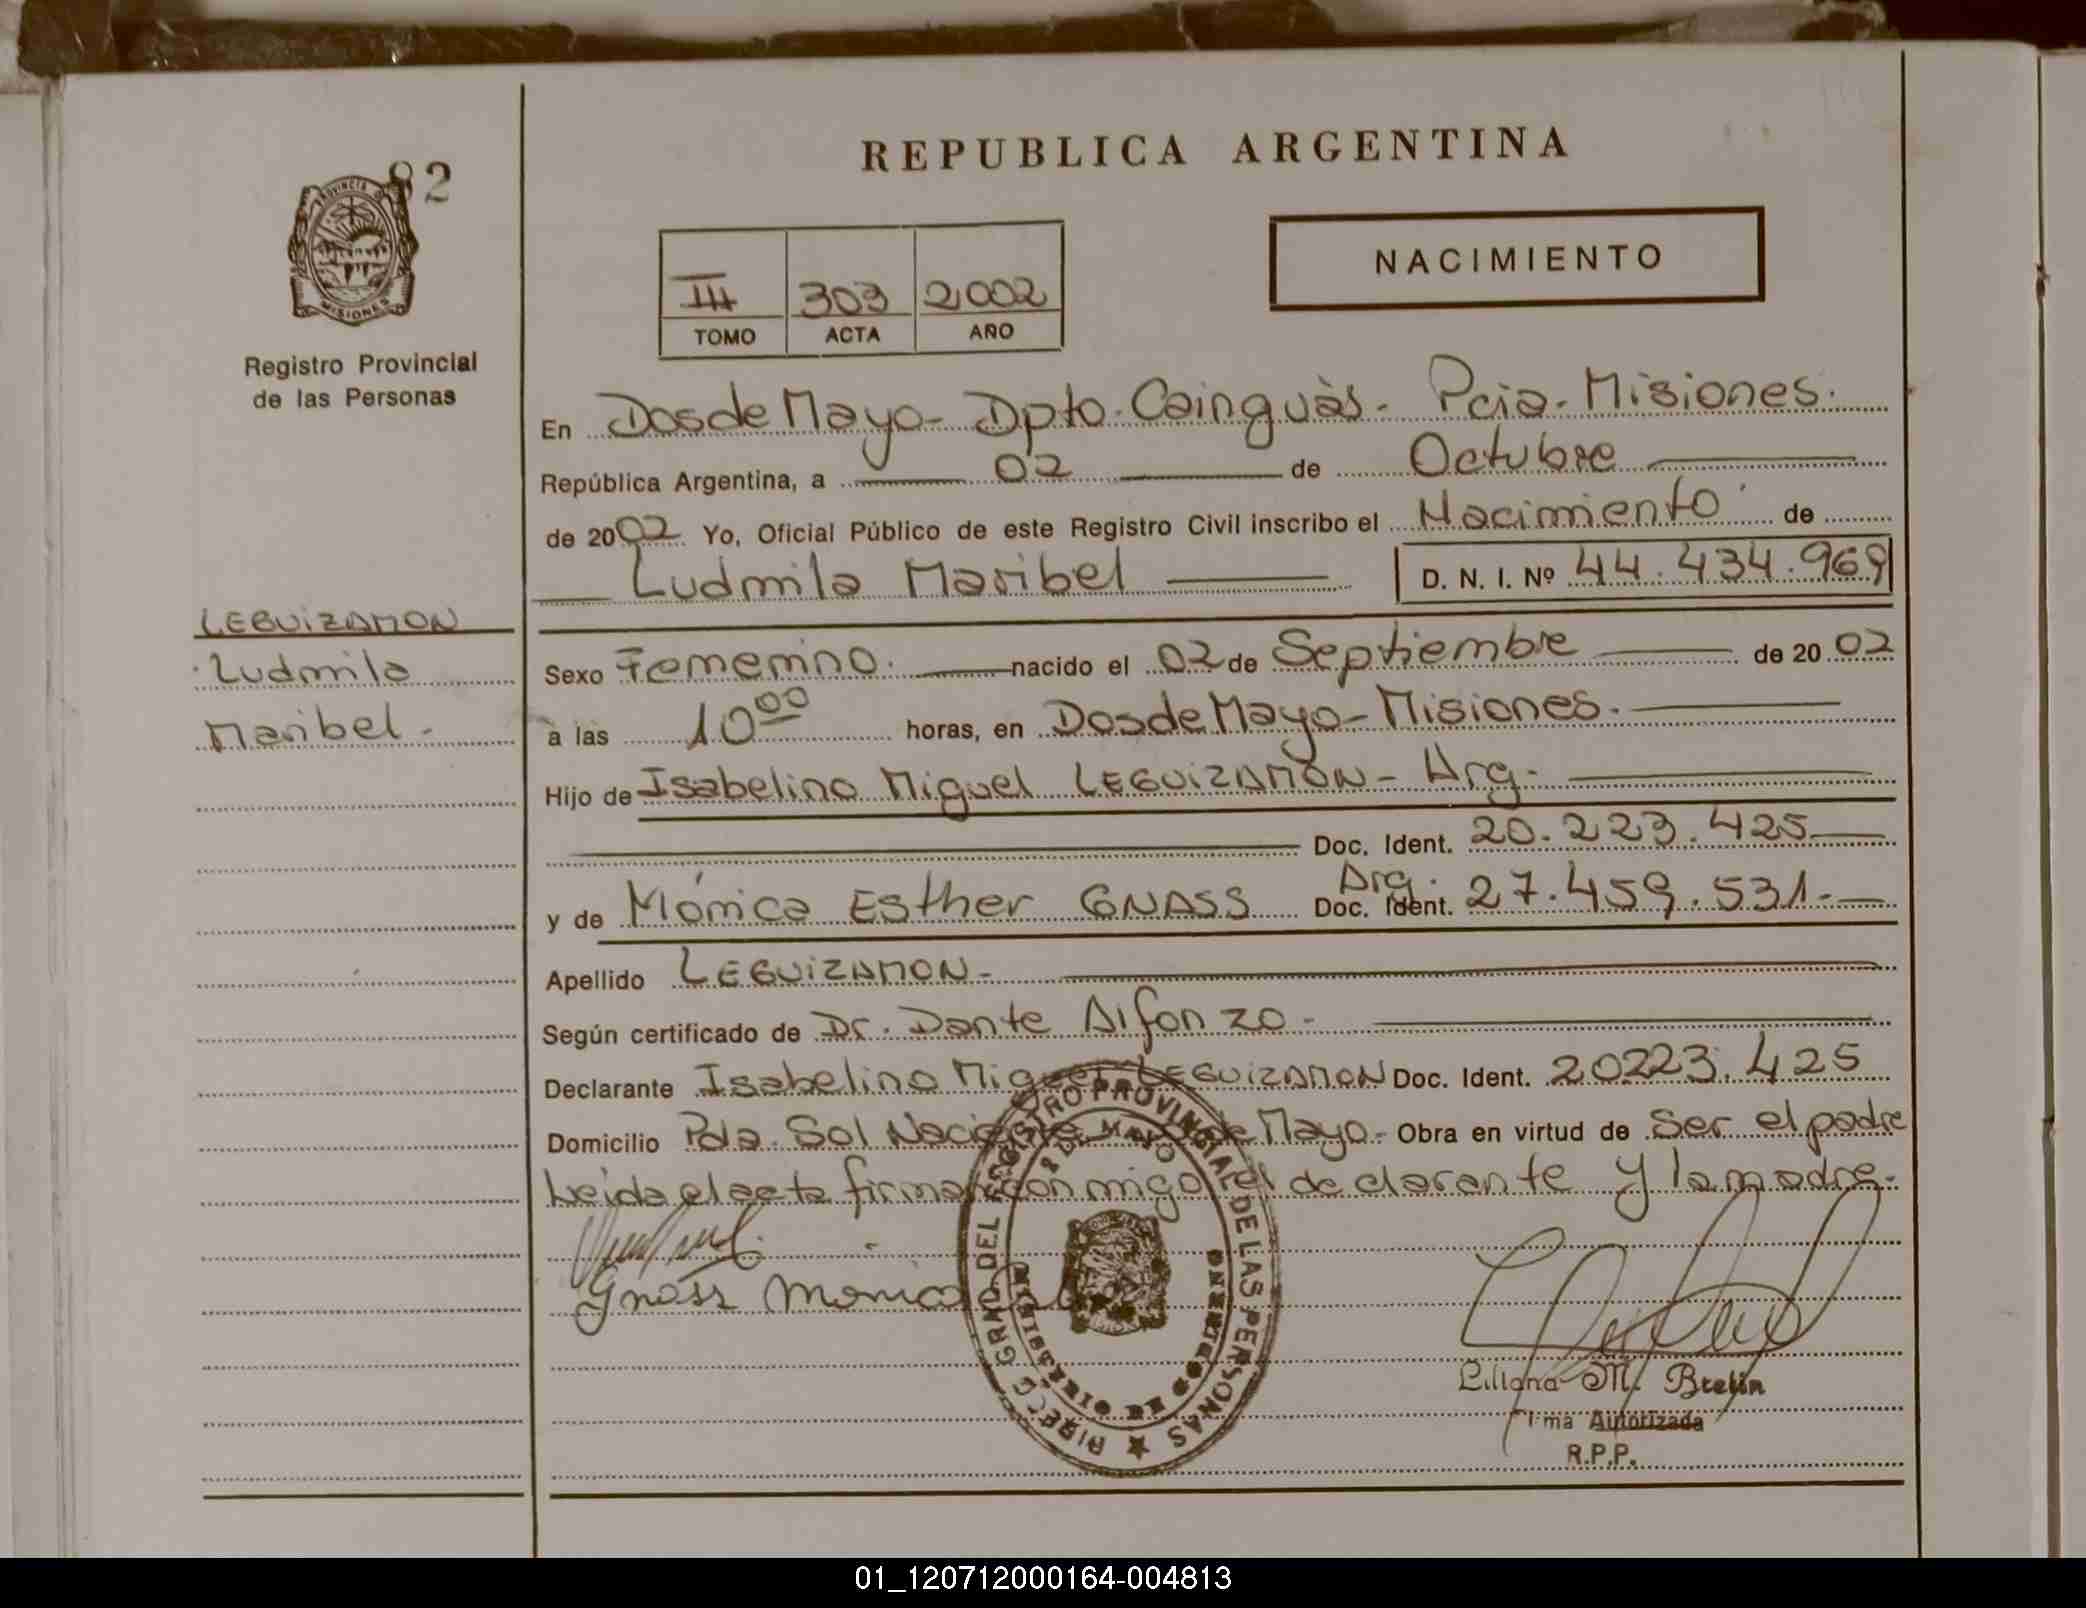 REPUBLICA ARGENTINA
82
PROVINCIA DE
MISIONES
Registro Provincial
de las Personas
III 303 2002
TOMO ACTA AÑO
NACIMIENTO
En Dos de Mayo - Dpto. Cainguàs - Pcia - Misiones.
República Argentina, a 02 de Octubre
de 2002 Yo, Oficial Público de este Registro Civil inscribo el Nacimiento de
Ludmila Maribel D. N. I. Nº 44.434.969
LEGUIZAMON
Ludmila
Maribel -
Sexo Femenino. nacido el 02 de Septiembre de 2002
à las 10 00 horas, en Dos de Mayo - Misiones.
Hijo de Isabelino Miguel LEGUIZAMON - Arg.
Doc. Ident. 20.223.425
y de Mónica Esther GNASS Arg. Doc. Ident. 27.459.531.-
Apellido LEGUIZAMON -
Según certificado de Dr. Dante Alfonzo -
Declarante Isabelino Miguel LEGUIZAMON Doc. Ident. 20223.425
Domicilio Pda. Sol Naciente de Mayo - Obra en virtud de Ser el padre
Leida el acta firman conmigo el declarante y la madre.-
Gnass Monica
DIREC. GRAL DEL REGISTRO PROVINCIAL DE LAS PERSONAS
2 DE MAYO
MISIONES
Liliana M. Brelin
Firma Autorizada
R.P.P.
01_120712000164-004813